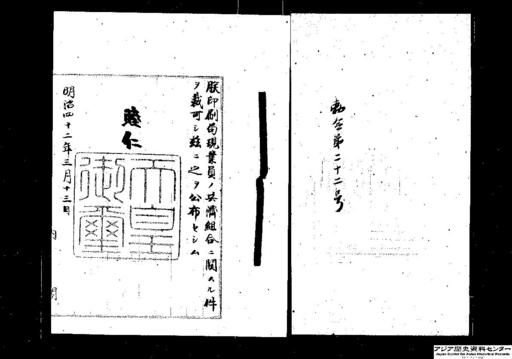 勅令第二十二号
朕印刷局現業員ノ共済組合ニ関スル件
ヲ裁可シ玆ニ之ヲ公布セシム
睦仁
天皇御璽
明治四十二年三月十三日
内閣
アジア歴史資料センター
Japan Center for Asian Historical Records